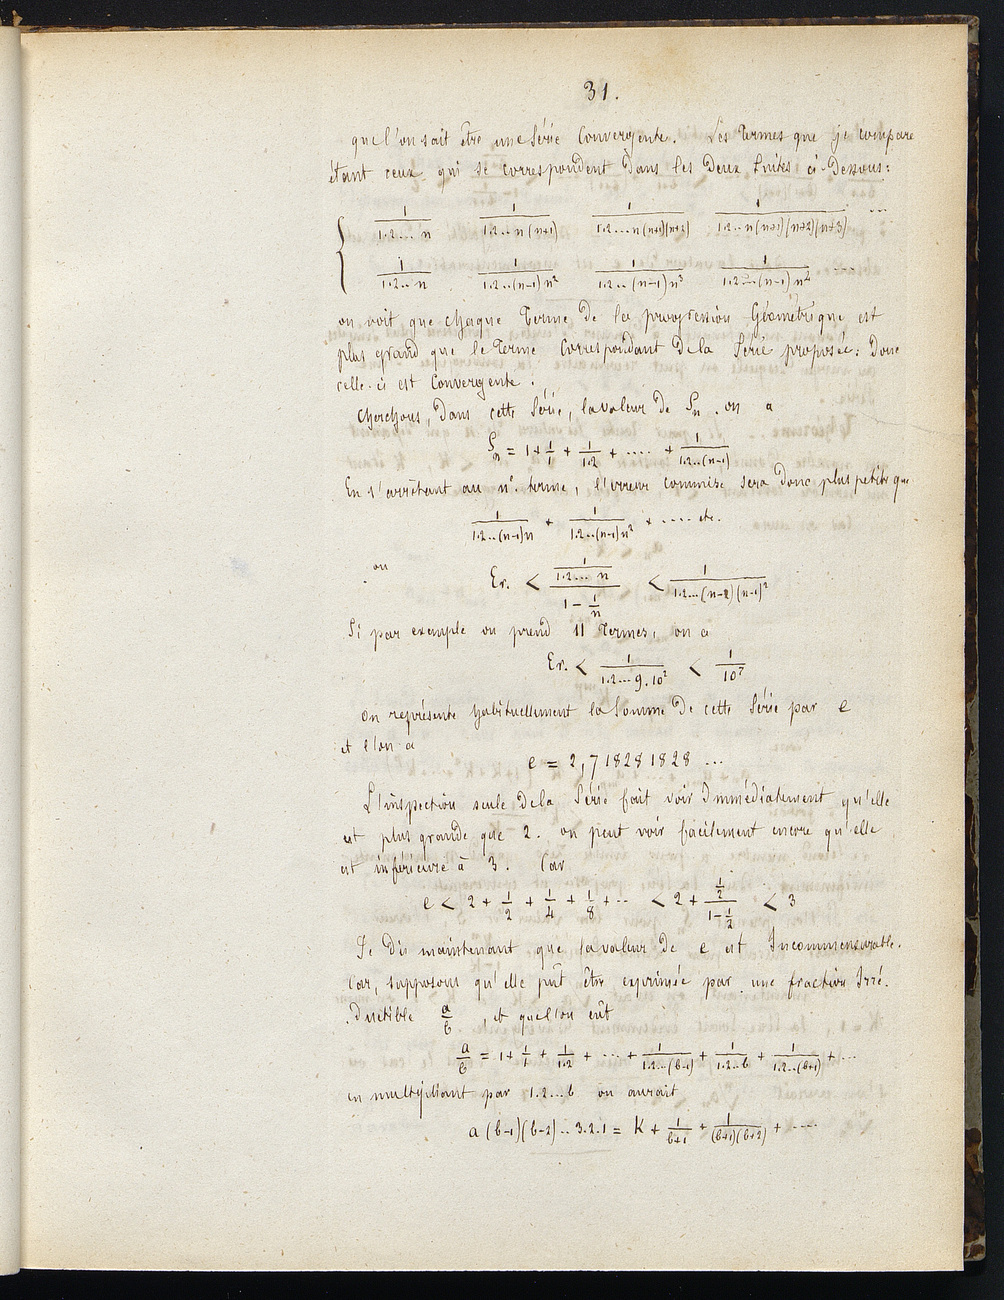 31.
que l'on sait être une Série Convergente. Les Termes que je compare
étant ceux qui se correspondent dans les Deux Suites ci-Dessous:
1/(1.2...n)   1/(1.2...n(n+1))   1/(1.2....n(n+1)(n+2))   1/(1.2...n(n+1)(n+2)(n+3)) ...
1/(1.2..n)   1/(1.2..(n-1)n²)   1/(1.2..(n-1)n³)   1/(1.2...(n-1)n⁴) ...
on voit que chaque Terme de la progression Géométrique est
plus grand que le Terme Correspondant de la Série proposée: Donc
celle-ci est Convergente.
Cherchons, Dans cette Série, la valeur de Sn. on a
Sn = 1 + 1/1 + 1/1.2 + .... + 1/(1.2...(n-1))
En s'arrêtant au nᵉ terme, l'erreur commise sera donc plus petite que
1/(1.2..(n-1)n) + 1/(1.2..(n-1)n²) + .... etc.
ou Er. < (1/(1.2... n))/(1 - 1/n) < 1/(1.2...(n-2)(n-1)²)
Si par exemple on prend 11 Termes, on a
Er. < 1/(1.2...9.10²) < 1/10⁷
On représente habituellement la Somme De cette Série par e
et l'on a
e = 2,71828 1828 ...
L'inspection seule de la Série fait voir Immédiatement qu'elle
est plus grande que 2. on peut voir facilement encore qu'elle
est inférieure à 3. Car
e < 2 + 1/2 + 1/4 + 1/8 + ... < 2 + (1/2)/(1-1/2) < 3
Je Dis maintenant que la valeur de e est Incommensurable.
Car, supposons qu'elle pût être exprimée par une fraction Irré-
ductible a/b, et que l'on eût
a/b = 1 + 1/1 + 1/1.2 + ... + 1/(1.2...(b-1)) + 1/(1.2...b) + 1/(1.2...(b+1)) + ...
en multipliant par 1.2...b on aurait
a(b-1)(b-2)...3.2.1 = K + 1/(b+1) + 1/((b+1)(b+2)) + ....